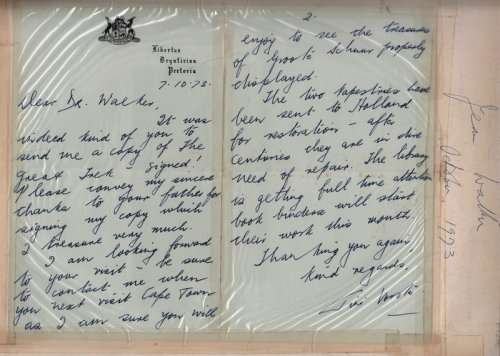 Libertas
Bryntirion
Pretoria
7-10-78.
Dear Dr. Walker,
It was
indeed kind of you to
send me a copy of The
Great Trek - signed!
Please convey my sincere
thanks to your father for
signing my copy which
I treasure very much.
I am looking forward
to your visit - be sure
to contact me when
you next visit Cape Town
as I am sure you will
2.
enjoy to see the treasures
of Groote Schuur properly
displayed.
The two tapestries have
been sent to Holland
for restoration - after
centuries they are in dire
need of repair. The library
is getting full time attention
book binders will start
their work this month.
Thanking you again
Kind regards,
Jean Walker
1993